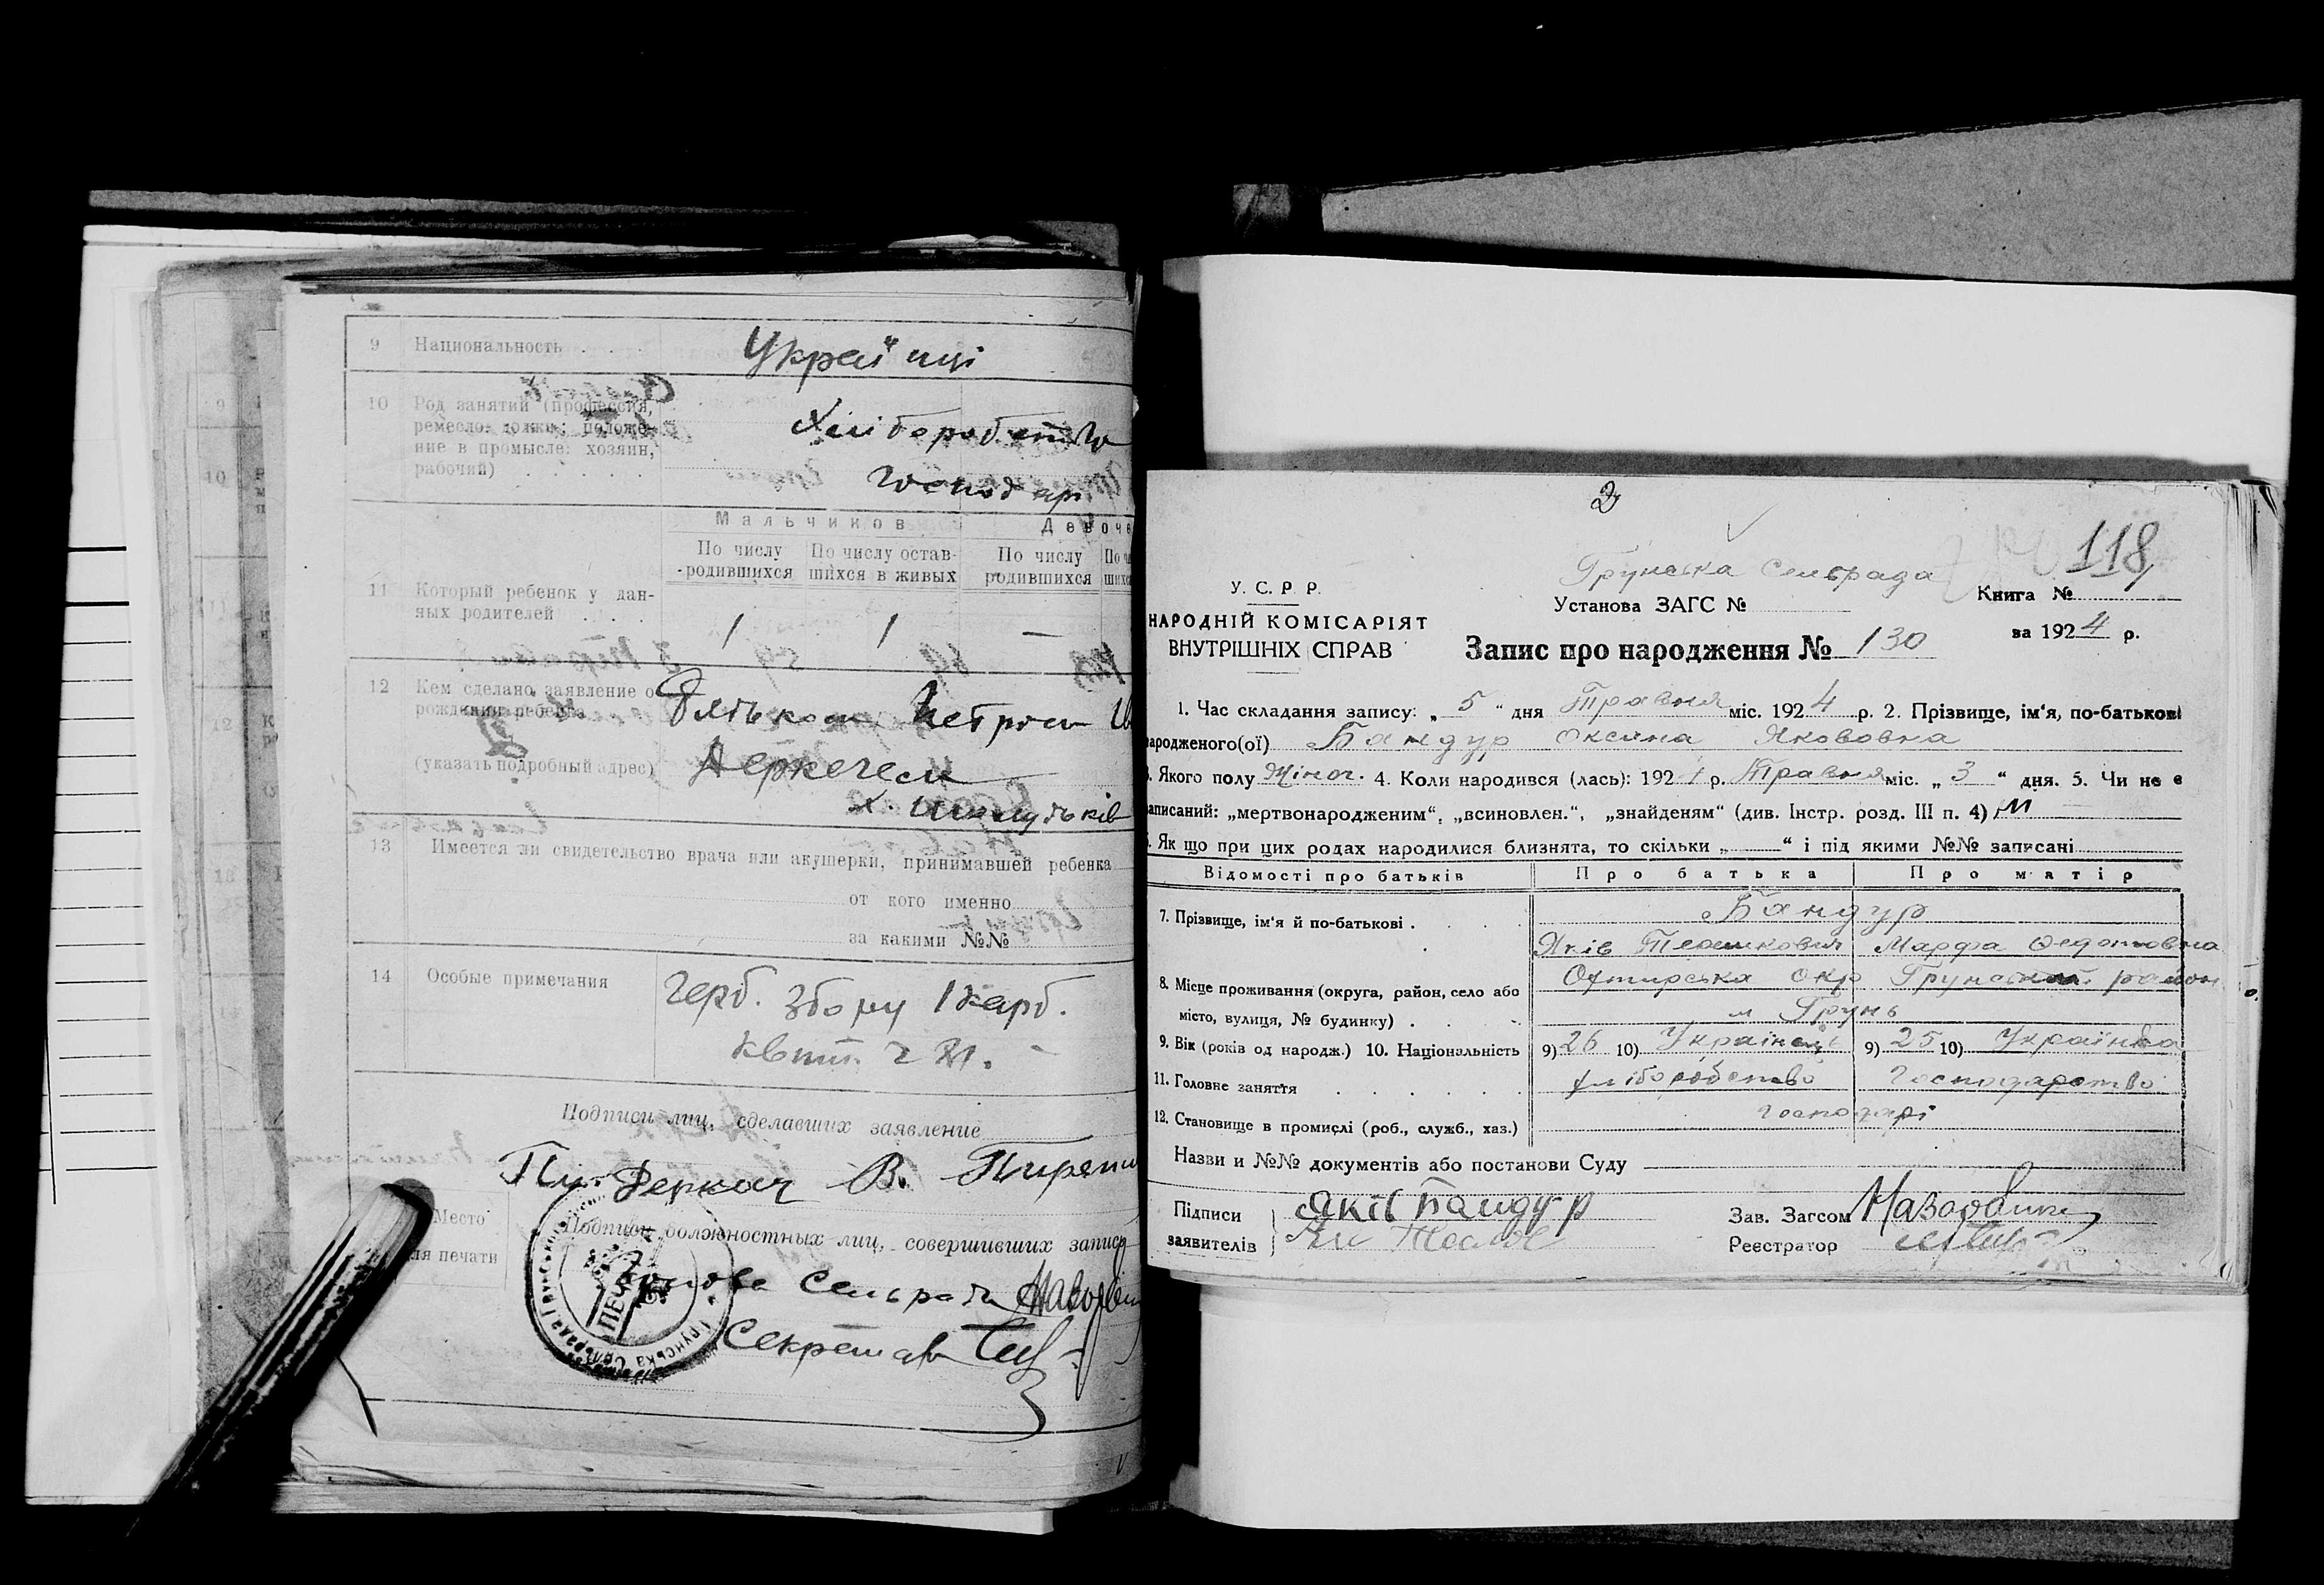 9 Национальность . . . Украї"нці
10 Род занятий (профессия,
ремесло, должн.; положе-
ние в промысле: хозяин,
рабочий) . . . . .
Хліборобство
Господарі
Мальчиков Девоче
По числу родившихся По числу остав-шихся в живых По числу родившихся
11 Который ребенок у дан-
ных родителей . . .
1 1 —
12 Кем сделано заявление о
рождении ребенка
(указать подробный адрес)
Батьком Петром
Деркачем
х.
13 Имеется ли свидетельство врача или акушерки, принимавшей ребенка
от кого именно
за какими №№
14 Особые примечания
герб. збору 1 карб.
квит.
Подписи лиц, сделавших заявление
Деркач В.
Место
ля печати
Подписи должностных лиц, совершивших запись
Голова Сельради
Секретар
ПЕЧ
Грунська
2
118
Грунська Сельрада
У.С.Р.Р.
Установа ЗАГС № Книга № 1
НАРОДНІЙ КОМІСАРІЯТ
ВНУТРІШНІХ СПРАВ
за 1924 р.
Запис про народження № 130
1. Час складання запису: „ 5 “ дня Травня міс. 1924 р. 2. Прізвище, ім‘я, по-батькові
ародженого(ої) Бандур Оксана Якововна
. Якого полу Жіноч. 4. Коли народився (лась): 1924 р. Травня міс. „ 3 “ дня. 5. Чи не є
аписаний: „мертвонародженим“, „всиновлен.“, „знайденям“ (див. Інстр. розд. III п. 4)
. Як що при цих родах народилися близнята, то скільки „ — “ і під якими №№ записані
Відомості про батьків Про батька Про матір
7. Прізвище, ім‘я й по-батькові . . . .
Бандур
Яків Марфа Федотовна
8. Місце проживання (округа, район, село або
місто, вулиця, № будинку) . . . .
Охтирська окр Грунський район
м Грунь
9. Вік (років од народж.) 10. Національність 9) 26 10) Українець 9) 25 10) Українка
11. Головне заняття . . . . . . хліборобство Господарство
12. Становище в промислі (роб., служб., хаз.) господарі
Назви и №№ документів або постанови Суду —
Підписи
заявителів
Яків Бандур
Зав. Загсом
Реєстратор